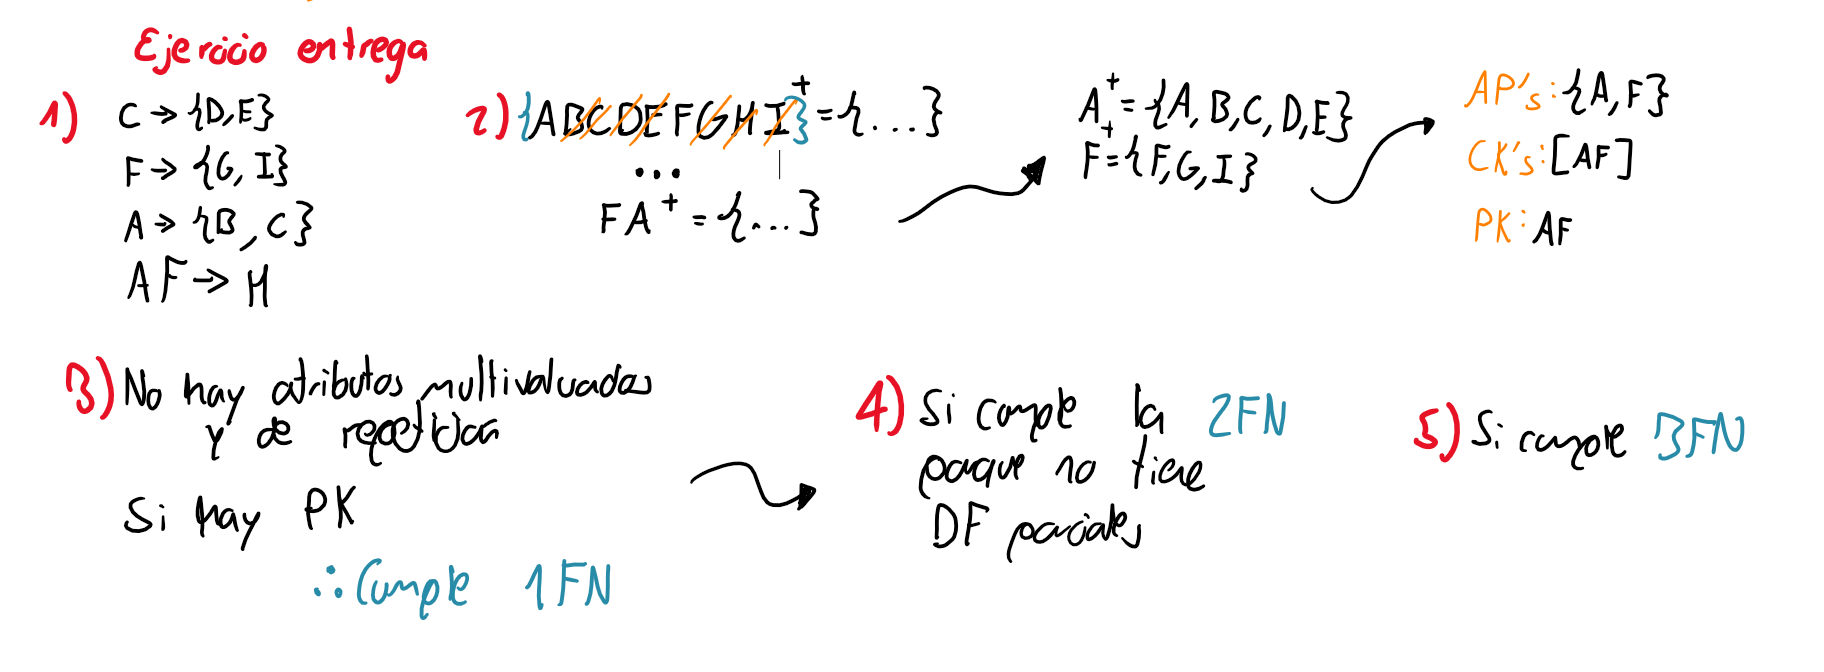 Ejercicio entrega
1) C → {D,E}
F → {G, I}
A → {B, C}
AF → H
2) {ABCDEFGHI}⁺ = {...}
...
FA⁺ = {...}
A⁺ = {A, B, C, D, E}
F⁺ = {F, G, I}
AP's: {A, F}
CK's: [AF]
PK: AF
3) No hay atributos multivaluados
Y de repetición
Si hay PK
∴ Cumple 1FN
4) Si cumple la 2FN
porque no tiene
DF parciales
5) Si cumple 3FN